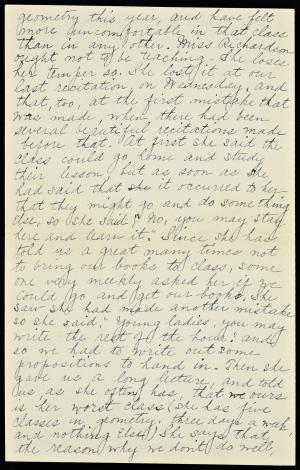 geometry this year, and have felt
more uncomfortable in that class
than in any other. Miss Richardson
ought not to be teaching. She loses
her temper so. She lost it at our
last recitation, on Wednesday, and
that, too, at the first mistake that
was made, when there had been
several beautiful recitations made
before that. At first she said the
class could go home and study
their lesson, but as soon as she
had said that she it occurred to her
that they might go and do something
else, so she said, "No, you may stay
here and learn it." Since she has
told us a great many times not
to bring our books to class, some
one very meekly asked her if we
could go and get our books. She
saw she had made another mistake
so she said, "Young ladies, you may
write the rest of the hour" and
so we had to write out some
propositions to hand in. Then she
gave us a long lecture, and told
us as she often has, that ours
is her worst class (she has five
classes in geometry three days a week,
and nothing else). She says that
the reason why we don't do well,